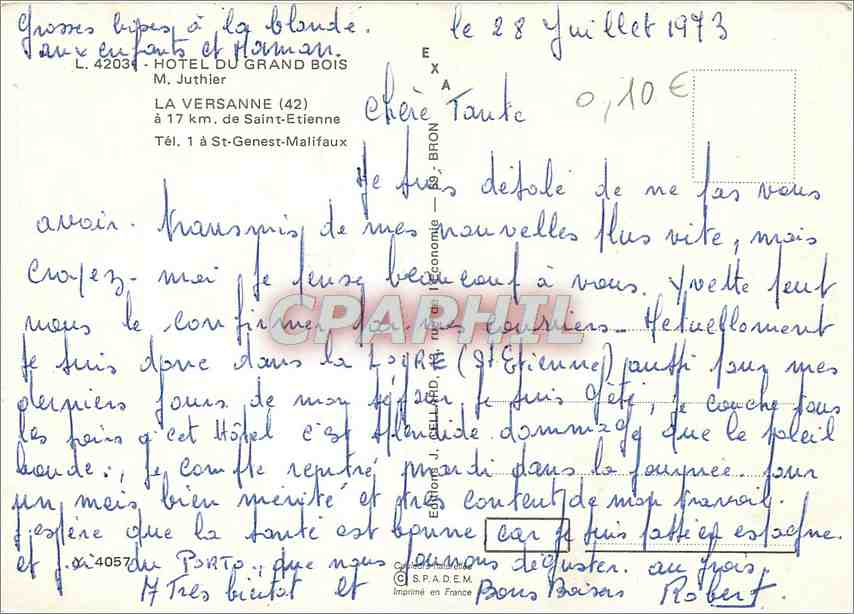 Grosses bises à la blonde.
aux enfants et Maman.
le 28 Juillet 1973
L. 4203 - HOTEL DU GRAND BOIS
M. Juthier
LA VERSANNE (42)
à 17 km. de Saint-Etienne
Tél. 1 à St-Genest-Malifaux
EXA
0,10 €
Chère Tante
Je suis désolé de ne pas vous
avoir transmis de mes nouvelles plus vite, mais
croyez-moi je pense beaucoup à vous. Yvette peut
vous le confirmer par mes courriers. Actuellement
je suis donc dans la LOIRE (St Etienne) aussi pour mes
derniers jours de mon séjour je suis gâté, je couche tous
les soirs à cet Hôtel c'est splendide dommage que le soleil
boude., je compte rentré mardi dans la journée. pour
un mois bien mérité et très content de mon travail.
j'espère que la santé est bonne car je suis passé en espagne
et j'ai du PORTO, que nous pouvons déguster au frais.
A Très bientôt et Bons Baisers Robert.
CPARPHIL
Editions J. CELLARD, rue de l'Economie - 69 - BRON
4057
Couleurs naturelles
© S.P.A.D.E.M.
Imprimé en France